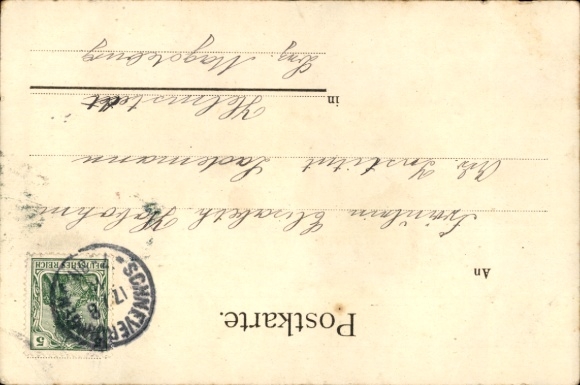 Postkarte.
An
Fräulein Elisabeth
Institut
in Helmstedt
Magdeburg
DEUTSCHES REICH
5
SCHNEVER
17
8